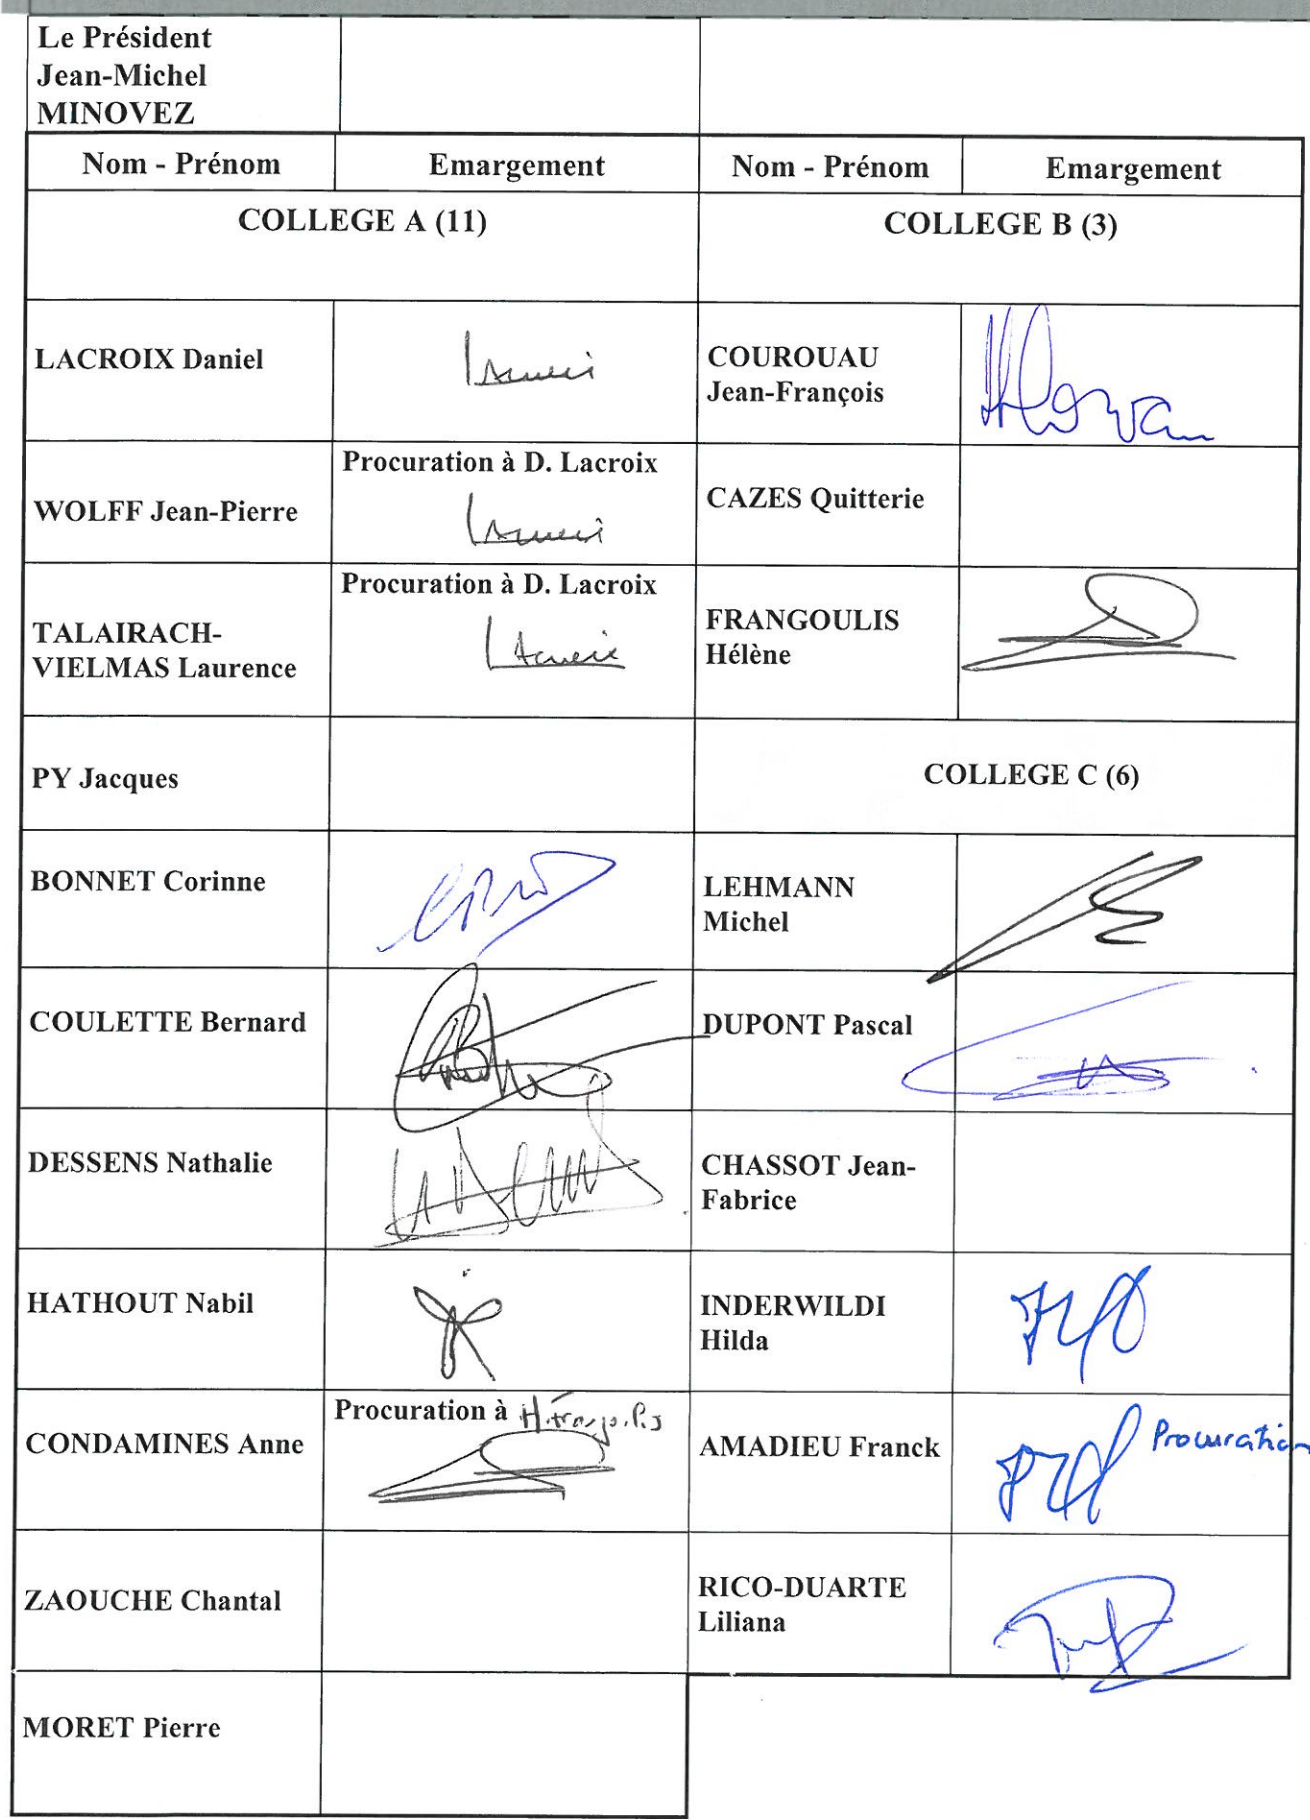 Le Président
Jean-Michel
MINOVEZ
Nom - Prénom
Emargement
Nom - Prénom
Emargement
COLLEGE A (11)
COLLEGE B (3)
LACROIX Daniel
COUROUAU
Jean-François
WOLFF Jean-Pierre
Procuration à D. Lacroix
CAZES Quitterie
TALAIRACH-
VIELMAS Laurence
Procuration à D. Lacroix
FRANGOULIS
Hélène
PY Jacques
COLLEGE C (6)
BONNET Corinne
LEHMANN
Michel
COULETTE Bernard
DUPONT Pascal
DESSENS Nathalie
CHASSOT Jean-
Fabrice
HATHOUT Nabil
INDERWILDI
Hilda
CONDAMINES Anne
Procuration à H.
AMADIEU Franck
Procuration
ZAOUCHE Chantal
RICO-DUARTE
Liliana
MORET Pierre